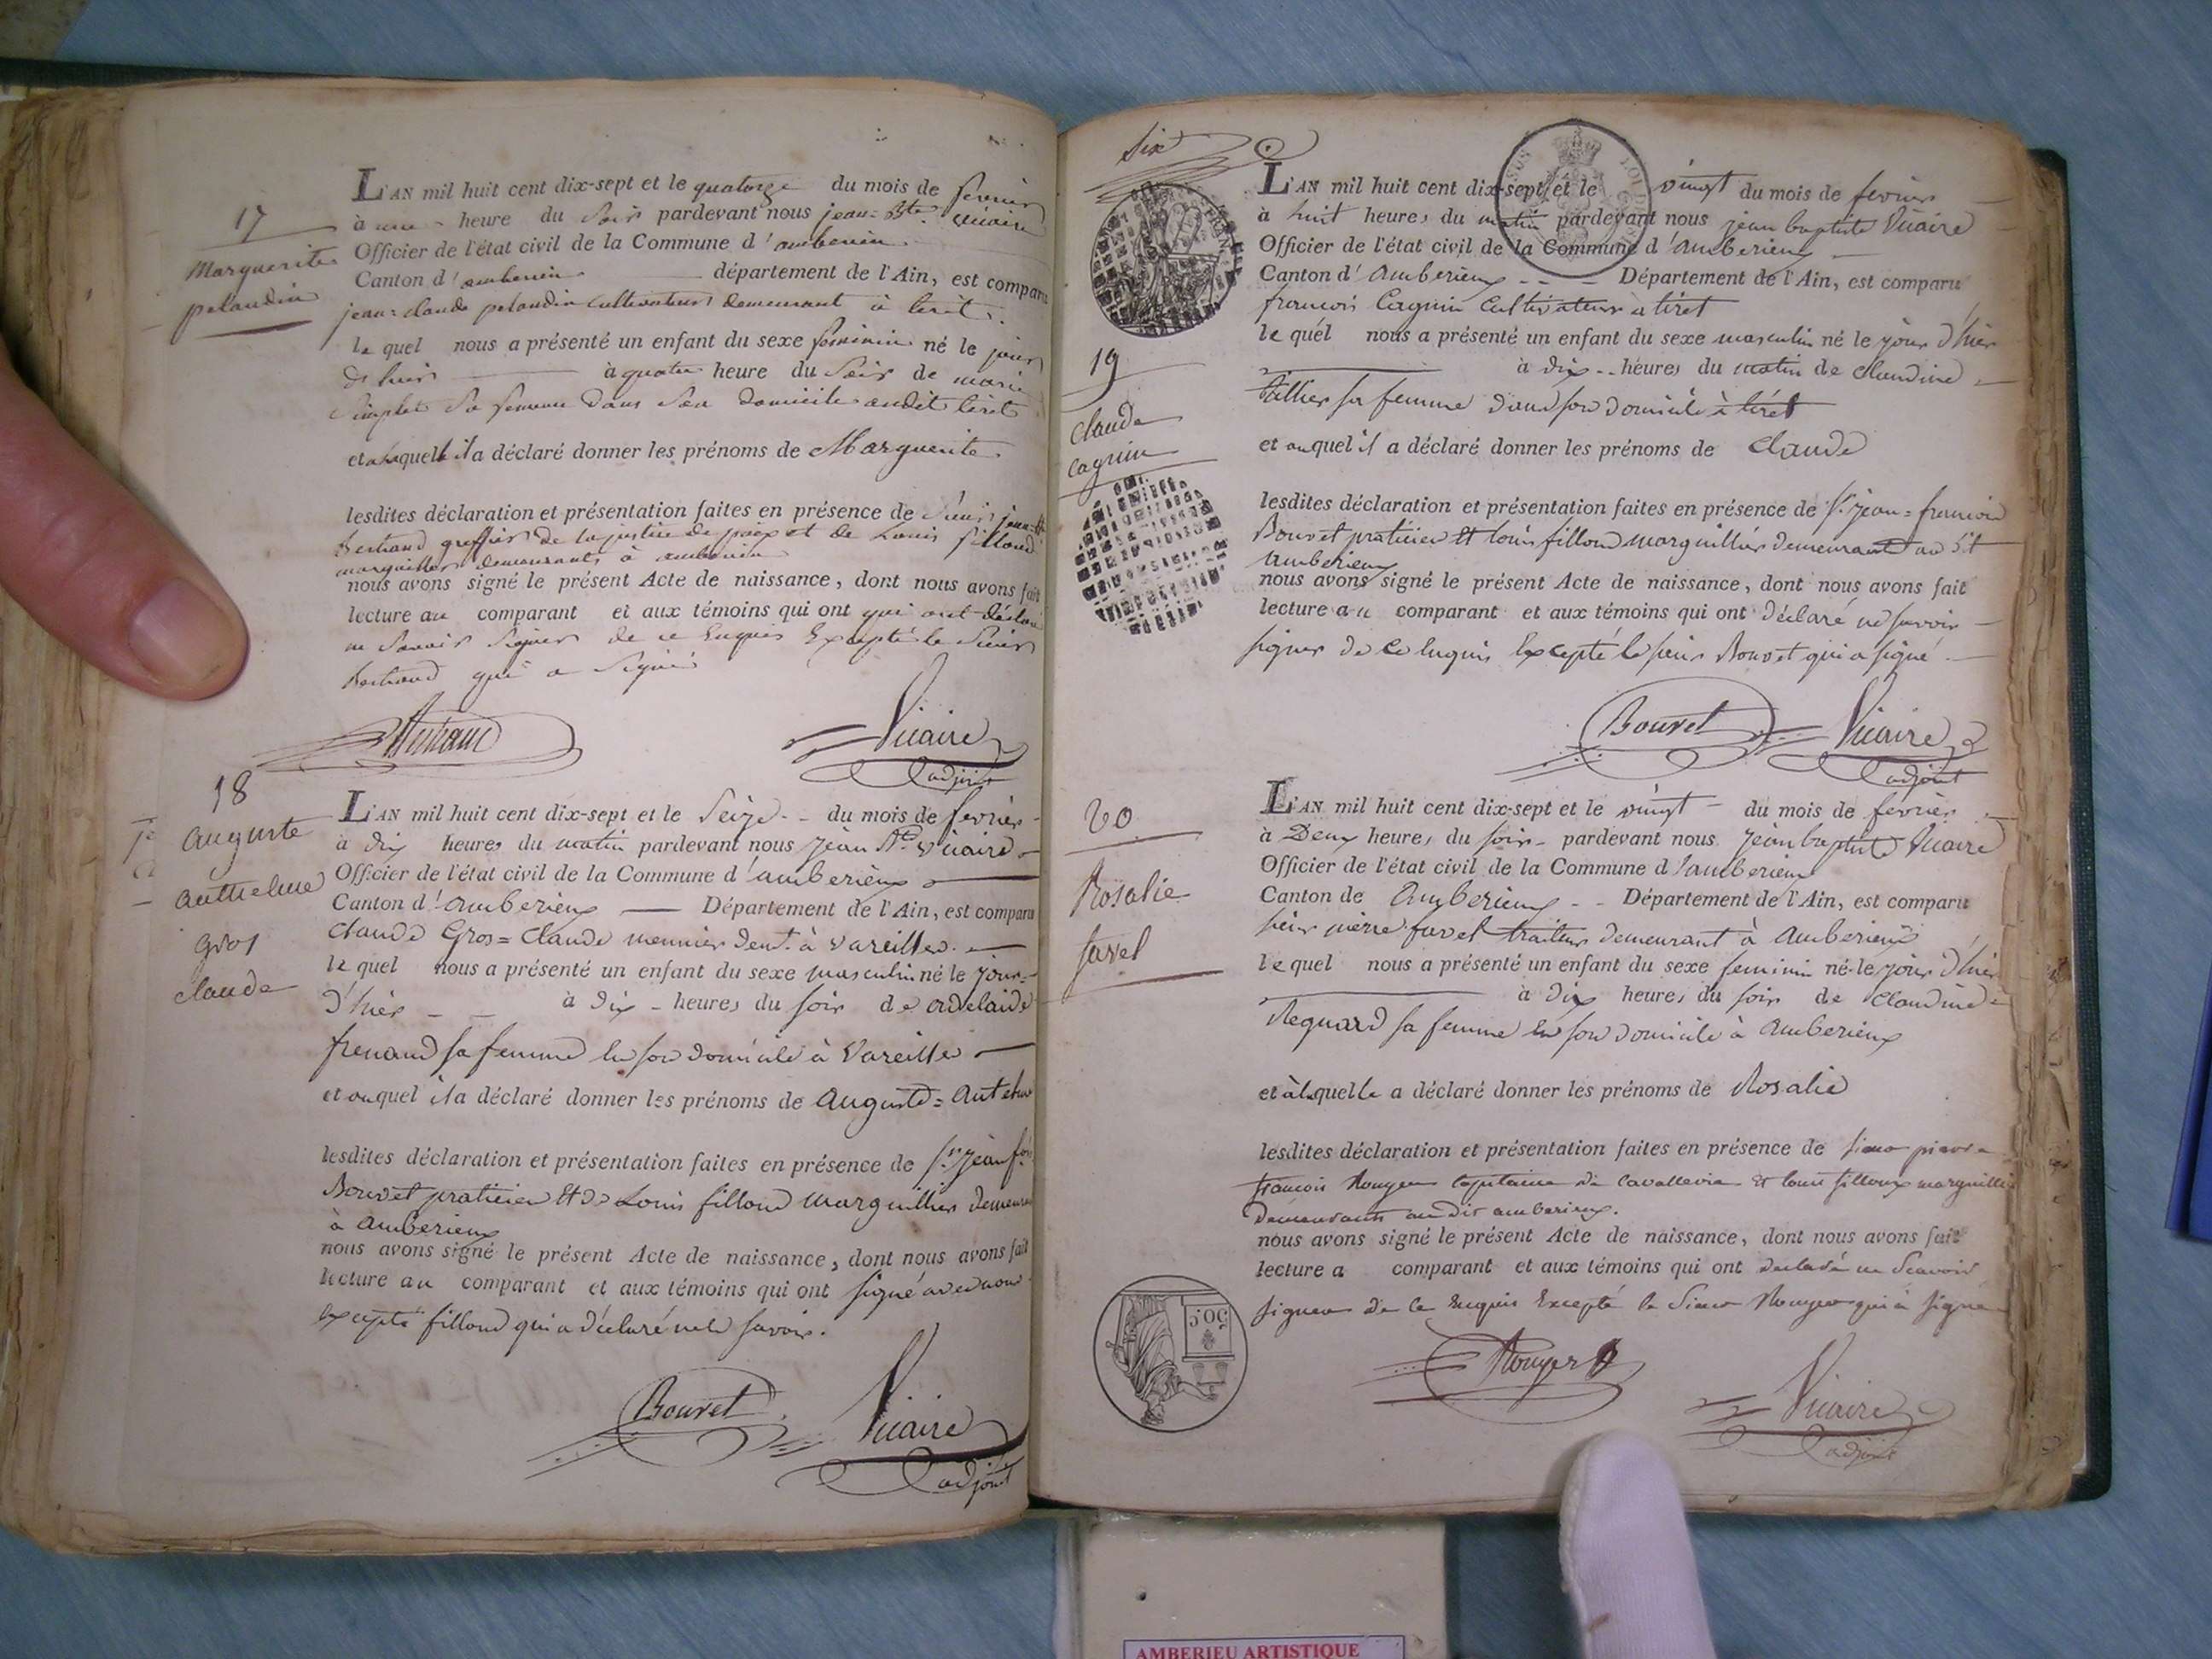 17
Marguerite
pelaudin
L'AN mil huit cent dix-sept et le quatorze du mois de fevrier
à une heure du Soir pardevant nous jean-Bte Vicaire
Officier de l'état civil de la Commune d'amberieu
Canton d'amberieu département de l'Ain, est comparu
jean-claude pelaudin Cultivateur demeurant à tiret
le quel nous a présenté un enfant du sexe feminin né le jour
d'hier à quatre heure du Soir de marie
Simplet Sa femme dans Son domicile audit tiret
et à laquelle il a déclaré donner les prénoms de Marguerite
lesdites déclaration et présentation faites en présence de Sieur jean-Bte
Bertrand greffier de la justice de paix et de Louis fillond
marguillier demeurants à amberieu
nous avons signé le présent Acte de naissance, dont nous avons fait
lecture au comparant et aux témoins qui ont qui ont déclaré
ne Savoir Signer de ce Enquis Excepté le Sieur
Bertrand qui a Signé
Bertrand Vicaire
adjoint
18
Auguste
anthelme
gros
claude
L'AN mil huit cent dix-sept et le Seize du mois de fevrier
à dix heures du matin pardevant nous jean Bte Vicaire
Officier de l'état civil de la Commune d'amberieux
Canton d'Amberieux Département de l'Ain, est comparu
Claude Gros=Claude meunier demt. à Vareilles
le quel nous a présenté un enfant du sexe masculin né le jour
d'hier à dix heures du soir de adelaide
frenand sa femme en son domicile à Vareilles
et auquel il a déclaré donner les prénoms de Auguste=Antelme
lesdites déclaration et présentation faites en présence de sr. jean fois
Bouvet praticien Et de Louis fillond marguillier demeurant
à Amberieux
nous avons signé le présent Acte de naissance, dont nous avons fait
lecture au comparant et aux témoins qui ont signé avec nous
excepté fillond qui a déclaré ne le savoir.
Bouvet Vicaire
adjoint
six
L'AN mil huit cent dix-sept et le vingt du mois de fevrier
à huit heures du matin pardevant nous jean baptiste Vicaire
Officier de l'état civil de la Commune d'amberieux
Canton d'Amberieux Département de l'Ain, est comparu
francois Cagnin Cultivateur à tiret
le quel nous a présenté un enfant du sexe masculin né le jour d'hier
à dix heures du matin de claudine
Tillier sa femme dans son domicile à tiret
et auquel il a déclaré donner les prénoms de Claude
19
Claude
cagnin
lesdites déclaration et présentation faites en présence de sr. jean=francois
Bouvet praticien Et louis fillond marguillier demeurant au dit
Amberieux
nous avons signé le présent Acte de naissance, dont nous avons fait
lecture au comparant et aux témoins qui ont déclaré ne savoir
signer de ce enquis Excepté le sieur Bouvet qui a signé
Bouvet Vicaire
adjoint
20
Rosalie
favel
L'AN mil huit cent dix-sept et le vingt du mois de fevrier
à Deux heures du soir pardevant nous jean baptiste Vicaire
Officier de l'état civil de la Commune d'amberieux
Canton de Amberieux Département de l'Ain, est comparu
sieur pierre favel traiteur demeurant à Amberieux
le quel nous a présenté un enfant du sexe feminin né le jour d'hier
à dix heures du soir de Claudine
Reguard sa femme en son domicile à Amberieux
et à laquelle a déclaré donner les prénoms de Rosalie
lesdites déclaration et présentation faites en présence de sieur pierre
francois Rouyer Capitaine de Cavallerie et louis filloux marguillier
demeurants audit amberieux.
nous avons signé le présent Acte de naissance, dont nous avons fait
lecture a comparant et aux témoins qui ont declaré ne Scavoir
signer de ce Enquis Excepté le Sieur Rouyer qui a signé
50C.
Rouyer Vicaire
adjoint
AMBERIEU ARTISTIQUE